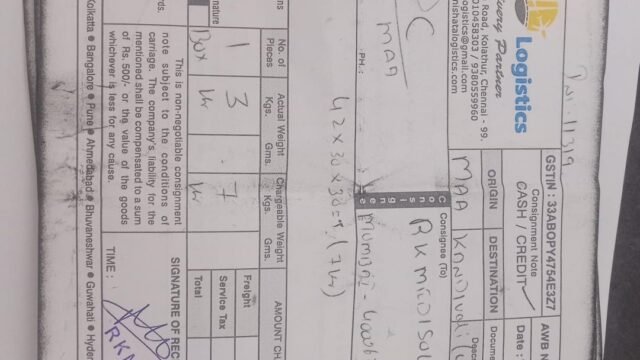 Delivery Partner
Logistics
Road, Kolathur, Chennai - 99.
9010458303 / 9380559960
logistics@gmail.com
nishatalogistics.com
GSTIN : 33ABOPY4754E3Z7
Consignment Note
CASH / CREDIT
AWB
Date :
ORIGIN
DESTINATION
MAA
KANDIVALI
DC
MAA
PH. :
Consignee (To)
RK MEDISOL
MUMBAI -
42 x 30 x 30 = 7 (7 kg)
No. of Pieces
Actual Weight
Kgs.
Gms.
Chargeable Weight
Kgs.
Gms.
AMOUNT CH
1
Box
3
7
Freight
Service Tax
Total
This is non-negotiable consignment
note subject to the conditions of
carriage. The company's liability for the
mentioned shall be compensated to a sum
of Rs. 500/- or the value of the goods
whichever is less for any cause.
SIGNATURE OF REC
TIME :
Kolkatta • Bangalore • Pune • Ahmedabad • Bhuvaneshwar • Guwahati • Hyder